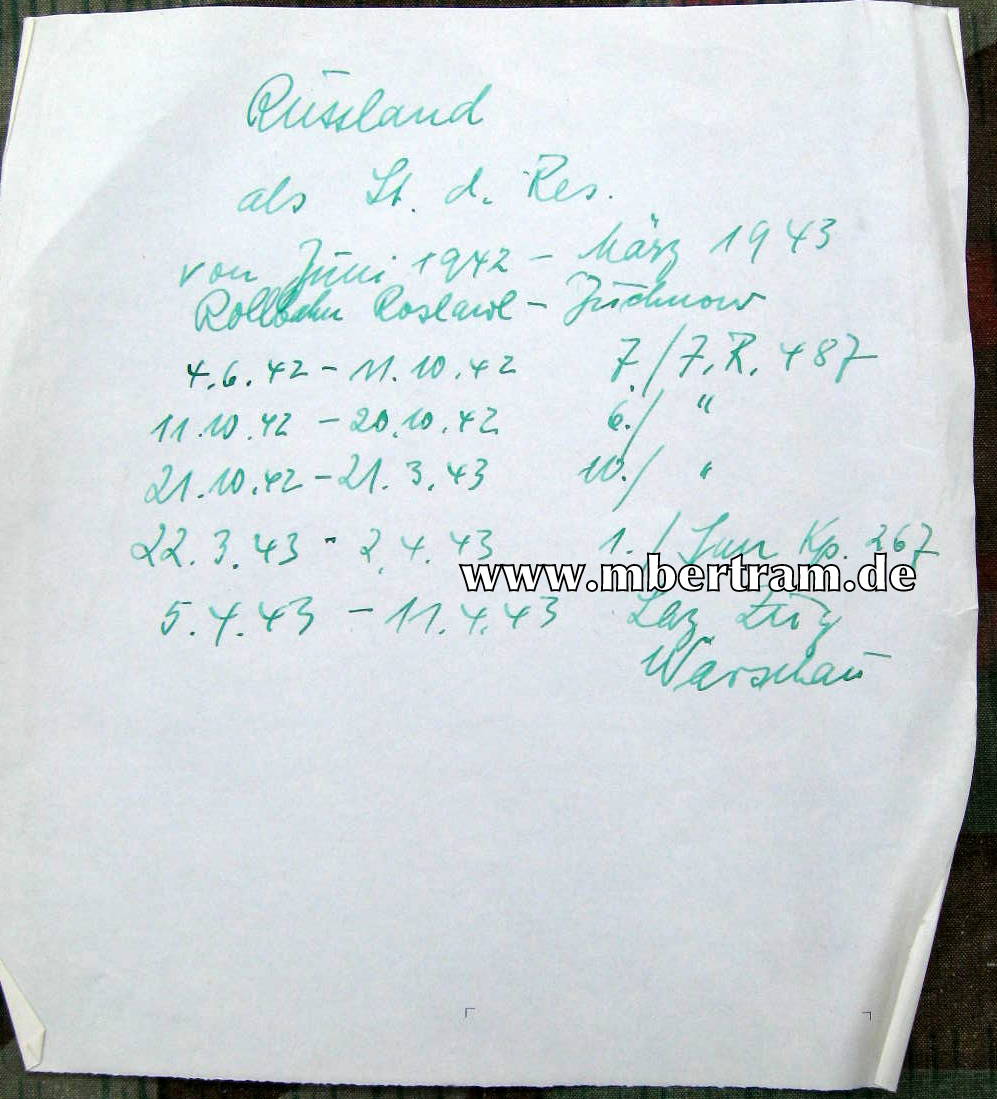 Russland
als Lt. d. Res.
von Juni 1942 - März 1943
Rollbahn Roslawl - Juchnow
4.6.42 - 11.10.42 7./J.R. 487
11.10.42 - 20.10.42 6./ "
21.10.42 - 21.3.43 10./ "
22.3.43 - 2.4.43 1./San Kp. 267
www.mbertram.de
5.4.43 - 11.4.43 Laz Zug
Warschau